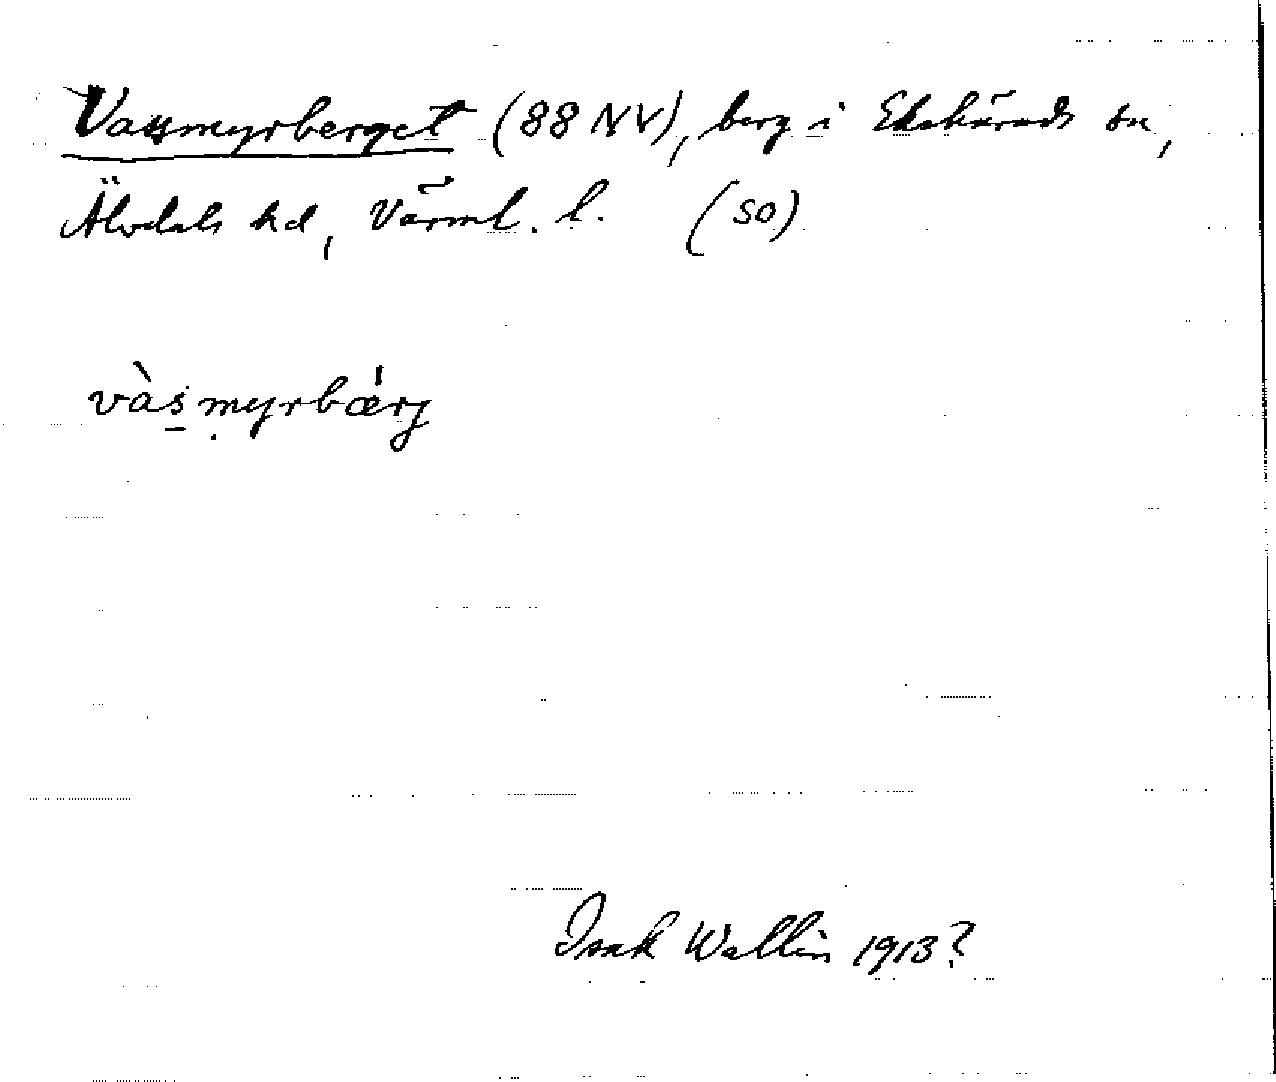 Vassmyrberget (88 NV), berg i Ekshärads sn,
Älvdals hd, Värml. l. (SO)
vàs̠myrbǽrj
Isak Wallin 1913?